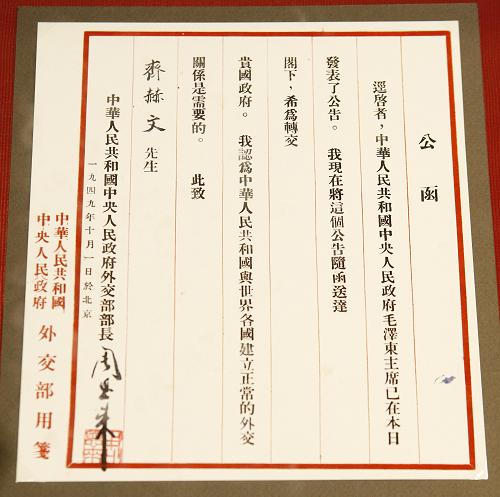 公函
逕啓者，中華人民共和國中央人民政府毛澤東主席已在本日
發表了公告。我現在將這個公告隨函送達
閣下，希爲轉交
貴國政府。我認爲中華人民共和國與世界各國建立正常的外交
關係是需要的。此致
齊赫文先生
中華人民共和國中央人民政府外交部部長周恩來
一九四九年十月一日於北京
中華人民共和國
中央人民政府
外交部用箋